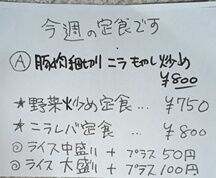 今週の定食です
Ⓐ 豚肉細切り ニラもやし炒め
¥800
★野菜炒め定食… ¥750
★ニラレバ定食… ¥800
◎ライス中盛り + プラス50円
◎ライス大盛り + プラス100円